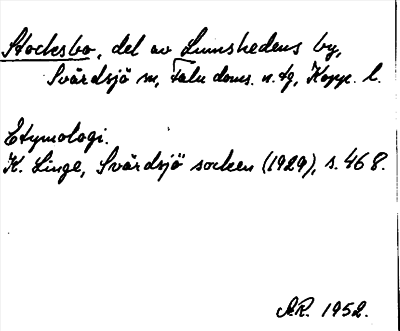 Stocksbo, del av Lumshedens by,
Svärdsjö sn, Falu doms. n. tg, Kopp. l.
Etymologi.
K. Linge, Svärdsjö socken (1929), s. 468.
A.R. 1952.